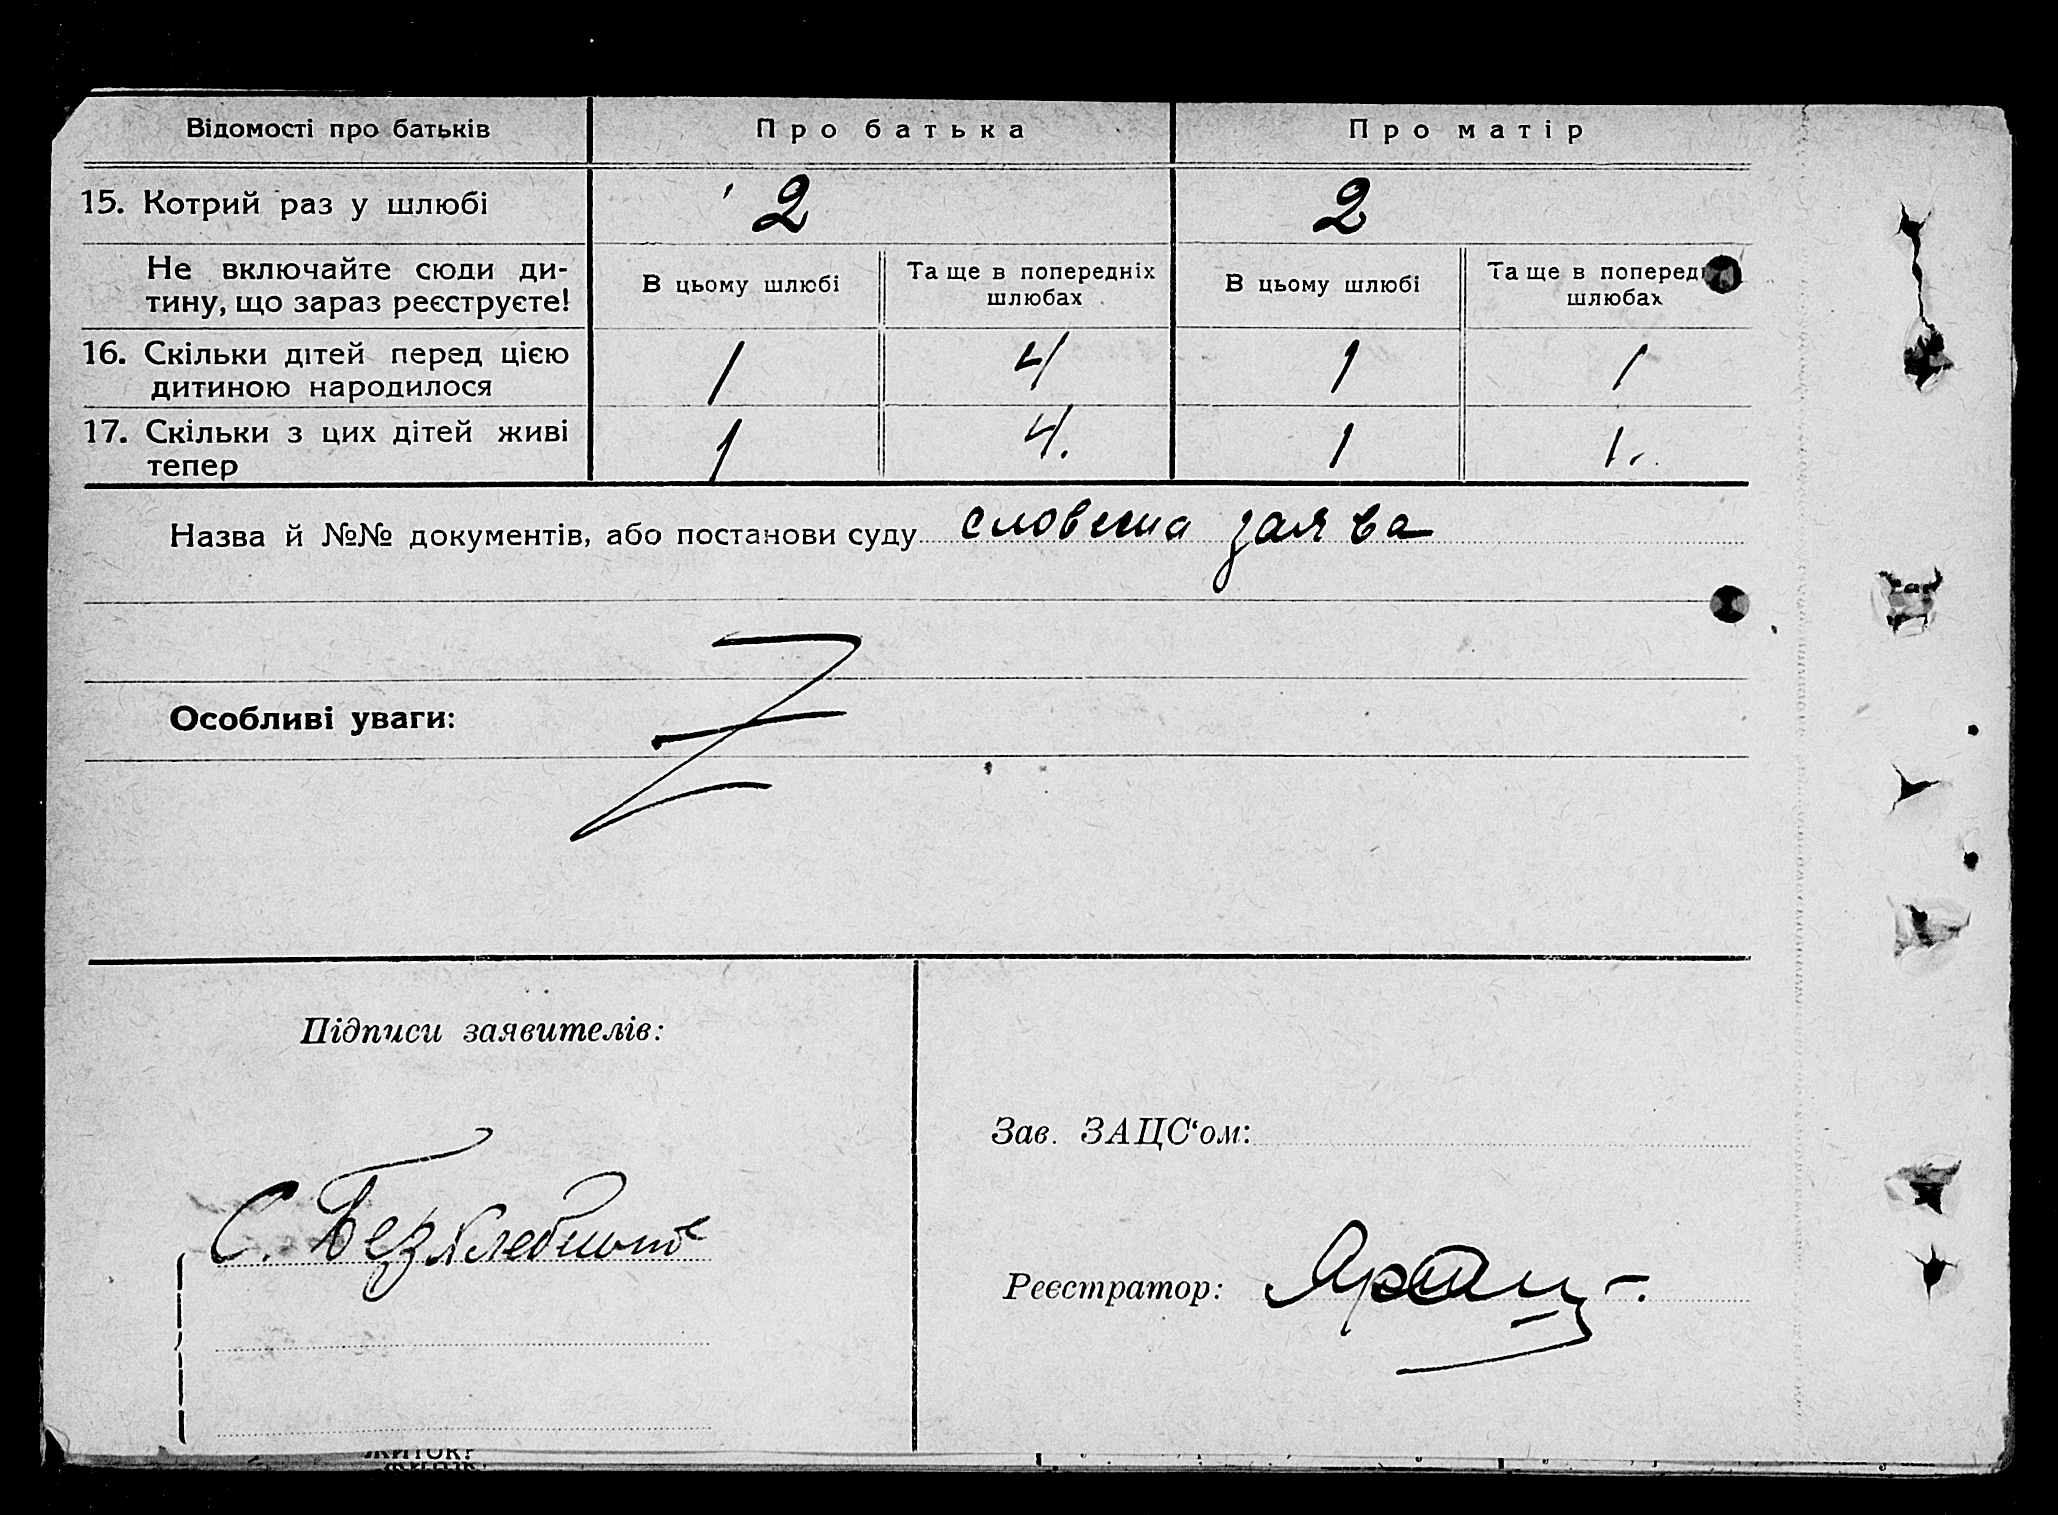 Відомості про батьків
Про батька
Про матір
15. Котрий раз у шлюбі
2
2
Не включайте сюди ди-
тину, що зараз реєструєте!
В цьому шлюбі
Та ще в попередніх
шлюбах
В цьому шлюбі
Та ще в поперед
шлюбах
16. Скільки дітей перед цією
дитиною народилося
1
4
1
1
17. Скільки з цих дітей живі
тепер
1
4.
1
1.
Назва й №№ документів, або постанови суду словесна заява
Особливі уваги:
Підписи заявителів:
С.
Зав. ЗАЦС'ом:
Реєстратор: